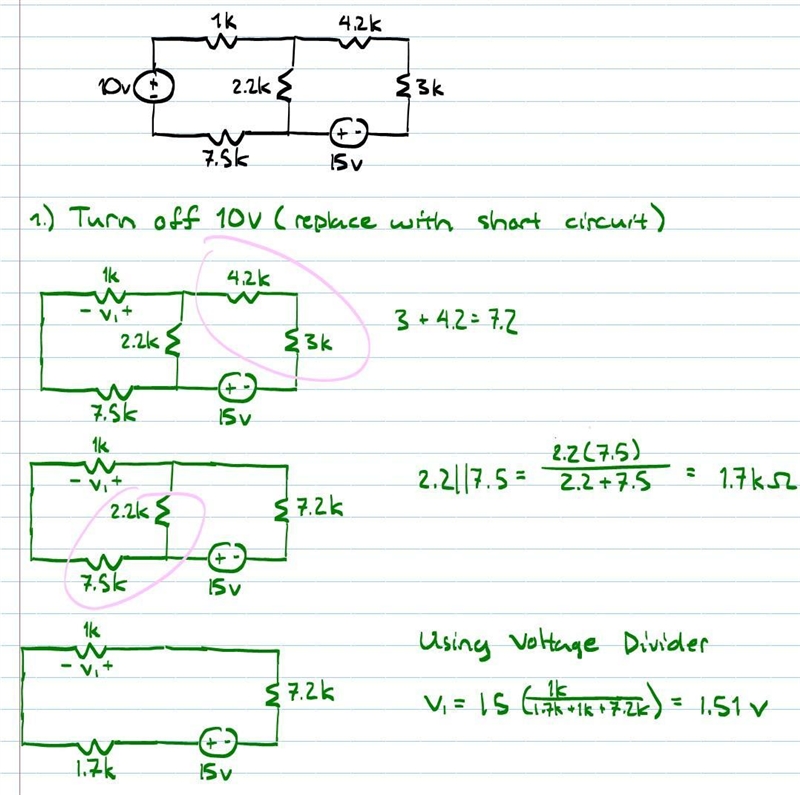 1k
4.2k
10v
+
-
2.2k
3k
7.5k
+ -
15v
1.) Turn off 10V (replace with short circuit)
1k
- V₁ +
4.2k
2.2k
3k
7.5k
+ -
15v
3 + 4.2 = 7.2
1k
- V₁ +
2.2k
7.2k
7.5k
+ -
15v
2.2||7.5 = 2.2(7.5) / 2.2 + 7.5 = 1.7kΩ
1k
- V₁ +
7.2k
1.7k
+ -
15v
Using Voltage Divider
V₁ = 15 (1k / 1.7k + 1k + 7.2k) = 1.51 v